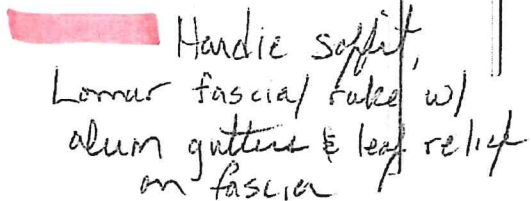 Hardie soffit,
Lomar fascia/rake w/
alum gutters & leaf relief
on fascia